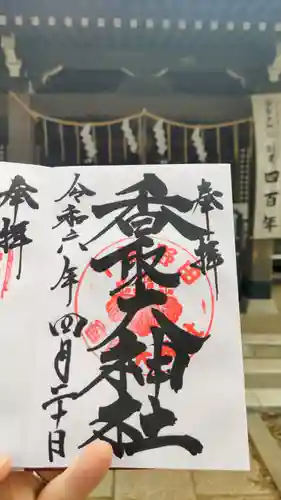 奉拝
香取神社
令和六年四月二十日
奉拝
四百年